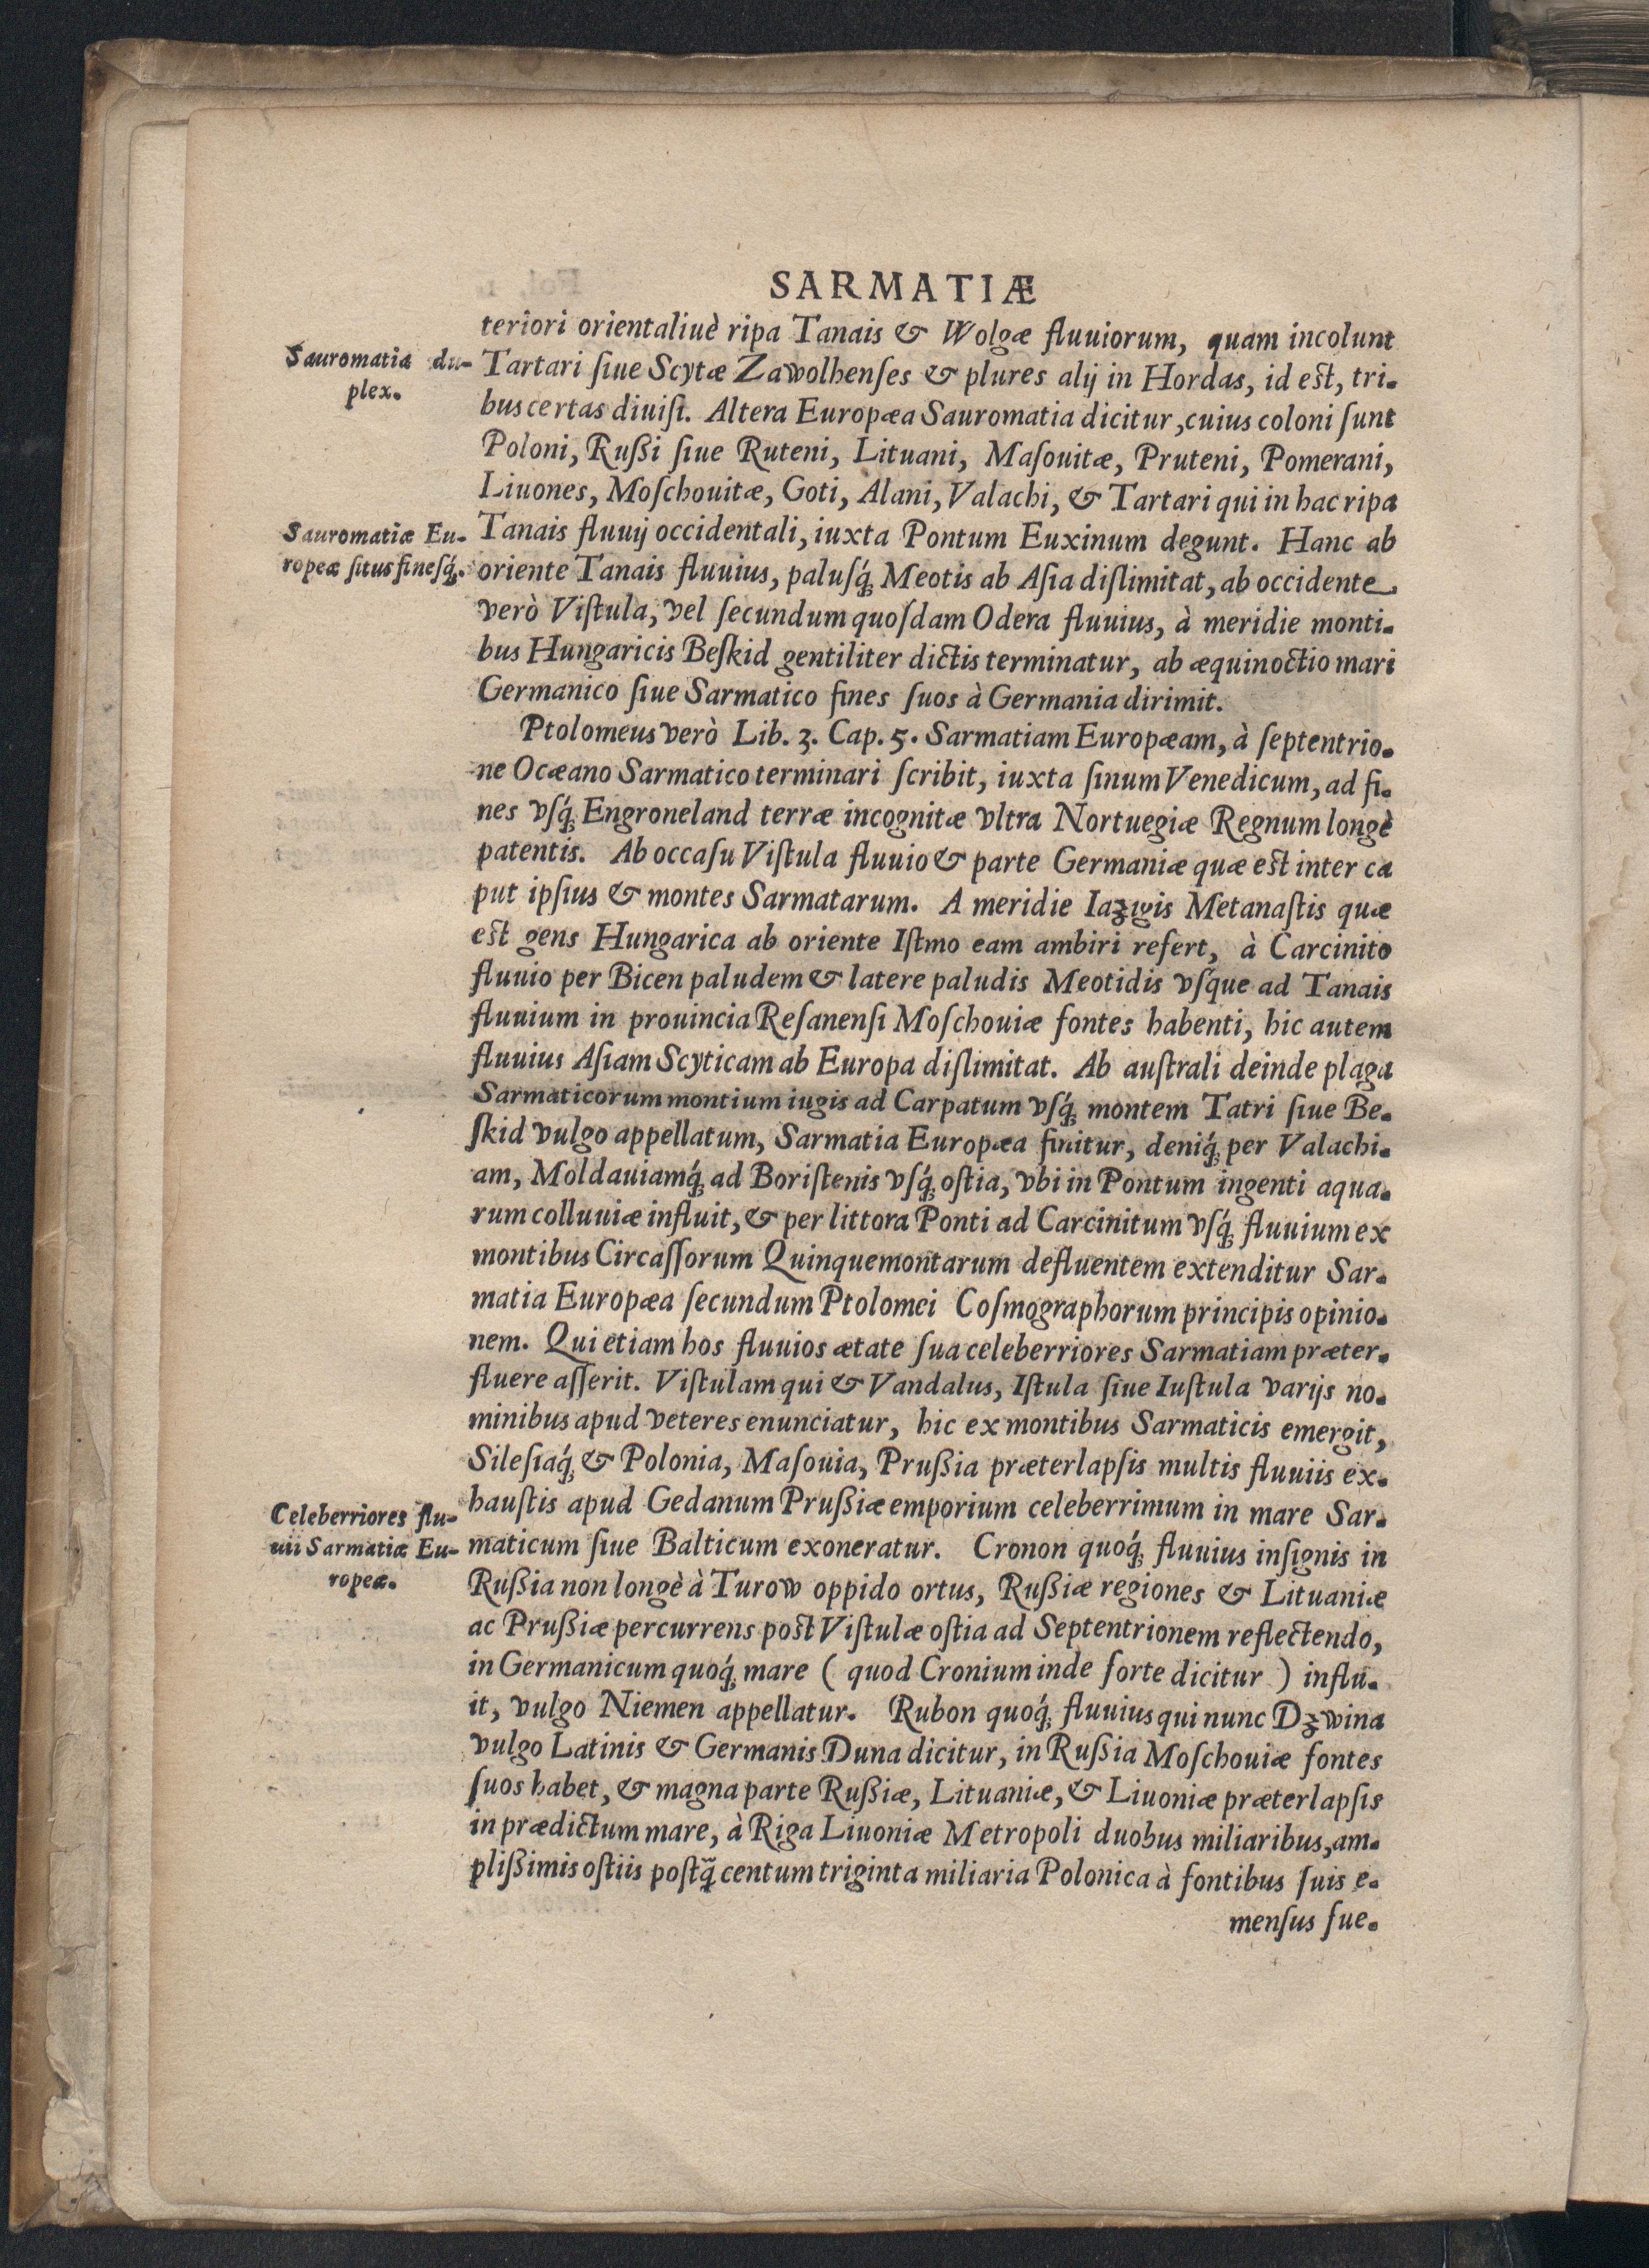 SARMATIÆ
teriori orientaliuè ripa Tanais & Wolgæ fluuiorum, quam incolunt
Sauromatia du-
plex.
Tartari ſiue Scytæ Zawolhenſes & plures alij in Hordas, id eſt, tri-
bus certas diuiſi. Altera Europæa Sauromatia dicitur, cuius coloni ſunt
Poloni, Rußi ſiue Ruteni, Lituani, Maſouitæ, Pruteni, Pomerani,
Liuones, Moſchouitæ, Goti, Alani, Valachi, & Tartari qui in hac ripa
Sauromatiæ Eu-
ropeæ ſitus fineſq́;.
Tanais fluuij occidentali, iuxta Pontum Euxinum degunt. Hanc ab
oriente Tanais fluuius, paluſq́; Meotis ab Aſia diſlimitat, ab occidente
verò Viſtula, vel ſecundum quoſdam Odera fluuius, à meridie monti-
bus Hungaricis Beſkid gentiliter dictis terminatur, ab æquinoctio mari
Germanico ſiue Sarmatico fines ſuos à Germania dirimit.
Ptolomeus verò Lib. 3. Cap. 5. Sarmatiam Europæam, à ſeptentrio-
ne Ocæano Sarmatico terminari ſcribit, iuxta ſinum Venedicum, ad fi-
nes vſq́; Engroneland terræ incognitæ vltra Nortuegiæ Regnum longè
patentis. Ab occaſu Viſtula fluuio & parte Germaniæ quæ eſt inter ca
put ipſius & montes Sarmatarum. A meridie Iazigis Metanaſtis quæ
eſt gens Hungarica ab oriente Iſtmo eam ambiri refert, à Carcinito
fluuio per Bicen paludem & latere paludis Meotidis vſq́ue ad Tanais
fluuium in prouincia Reſanenſi Moſchouiæ fontes habenti, hic autem
fluuius Aſiam Scyticam ab Europa diſlimitat. Ab auſtrali deinde plaga
Sarmaticorum montium iugis ad Carpatum vſq́; montem Tatri ſiue Be-
ſkid vulgo appellatum, Sarmatia Europæa finitur, deniq́; per Valachi-
am, Moldauiamq́; ad Boriſtenis vſq́; oſtia, vbi in Pontum ingenti aqua-
rum colluuiæ influit, & per littora Ponti ad Carcinitum vſq́; fluuium ex
montibus Circaſſorum Quinquemontarum defluentem extenditur Sar-
matia Europæa ſecundum Ptolomei Coſmographorum principis opinio-
nem. Qui etiam hos fluuios ætate ſua celeberriores Sarmatiam præter-
fluere aſſerit. Viſtulam qui & Vandalus, Iſtula ſiue Iuſtula varijs no-
minibus apud veteres enunciatur, hic ex montibus Sarmaticis emergit,
Sileſiaq́; & Polonia, Maſouia, Prußia præterlapſis multis fluuiis ex-
Celeberriores flu-
uii Sarmatiæ Eu-
ropeæ.
hauſtis apud Gedanum Prußiæ emporium celeberrimum in mare Sar-
maticum ſiue Balticum exoneratur. Cronon quoq́; fluuius inſignis in
Rußia non longè à Turow oppido ortus, Rußiæ regiones & Lituaniæ
ac Prußiæ percurrens poſt Viſtulæ oſtia ad Septentrionem reflectendo,
in Germanicum quoq́; mare ( quod Cronium inde forte dicitur ) influ-
it, vulgo Niemen appellatur. Rubon quoq́; fluuius qui nunc Dzwina
vulgo Latinis & Germanis Duna dicitur, in Rußia Moſchouiæ fontes
ſuos habet, & magna parte Rußiæ, Lituaniæ, & Liuoniæ præterlapſis
in prædictum mare, à Riga Liuoniæ Metropoli duobus miliaribus, am-
plißimis oſtiis poſtq̃; centum triginta miliaria Polonica à fontibus ſuis e-
menſus fue-